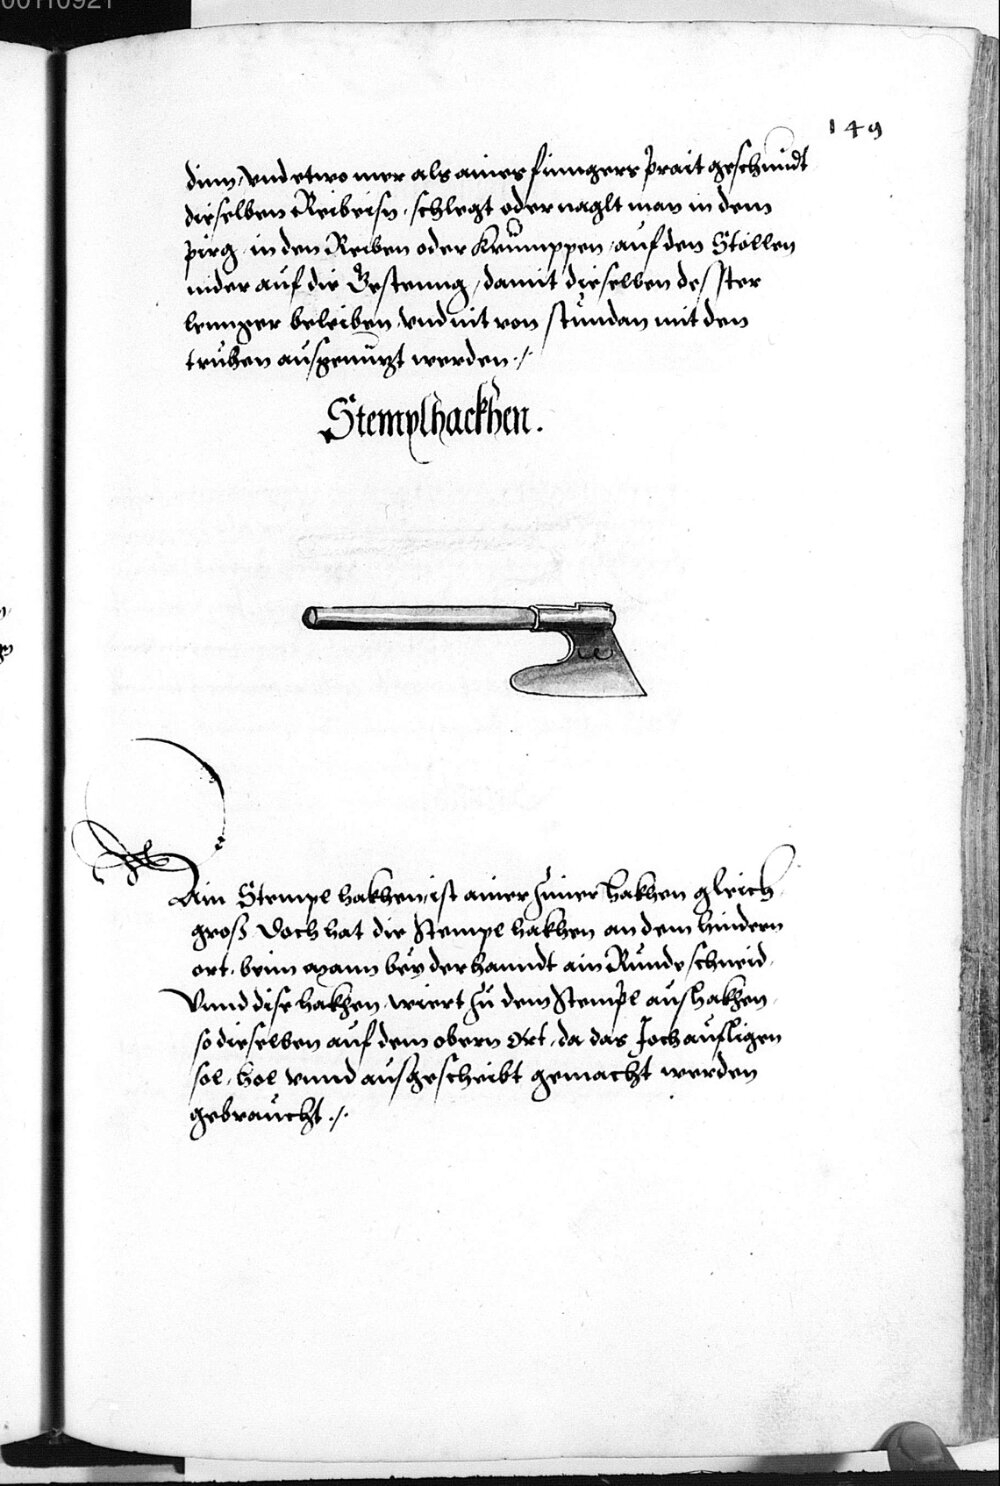 00110921
149
dinn, vnd etwo mer als aines finngers prait geschmidt
dieselben Reibeisn, schlegt oder naglt man in dem
pirg, in den Reiben oder Krumppen, auf den Stollen
nider auf die Gestenng, damit dieselben desster
lennger beleiben, vnd nit von stundan mit den
truhen ausgenutzt werden ./.
Stemplhackhen.
Ain Stempl hakhen, ist ainer hakhen gleich
groß Doch hat die Stempl hakhen an dem hindern
ort, beim bey der hanndt ain Runde schneid,
Vnnd dise hakhen, wiert zu dem Stempl aushakhen,
so dieselben auf dem obern Ort, da das Joch aufligen
sol, hol vnnd ausgescheibt gemacht werden
gebraucht ./.